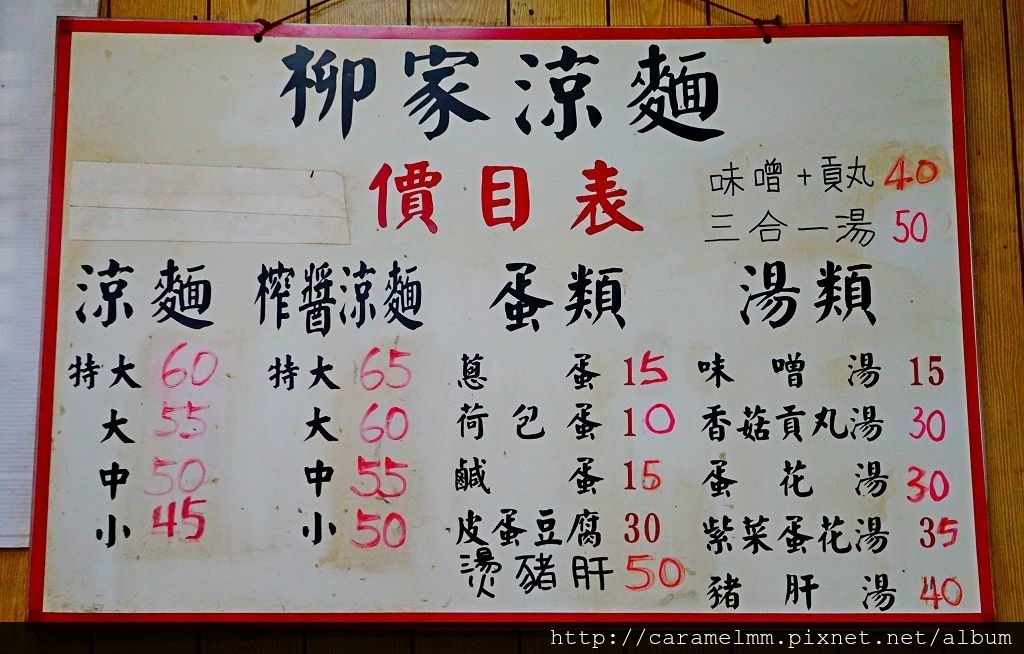 柳家涼麵
價目表
味噌+貢丸 40
三合一湯 50
涼麵
特大 60
大 55
中 50
小 45
榨醬涼麵
特大 65
大 60
中 55
小 50
蛋類
蔥蛋 15
荷包蛋 10
鹹蛋 15
皮蛋豆腐 30
燙豬肝 50
湯類
味噌湯 15
香菇貢丸湯 30
蛋花湯 30
紫菜蛋花湯 35
豬肝湯 40
http://caramelmm.pixnet.net/album